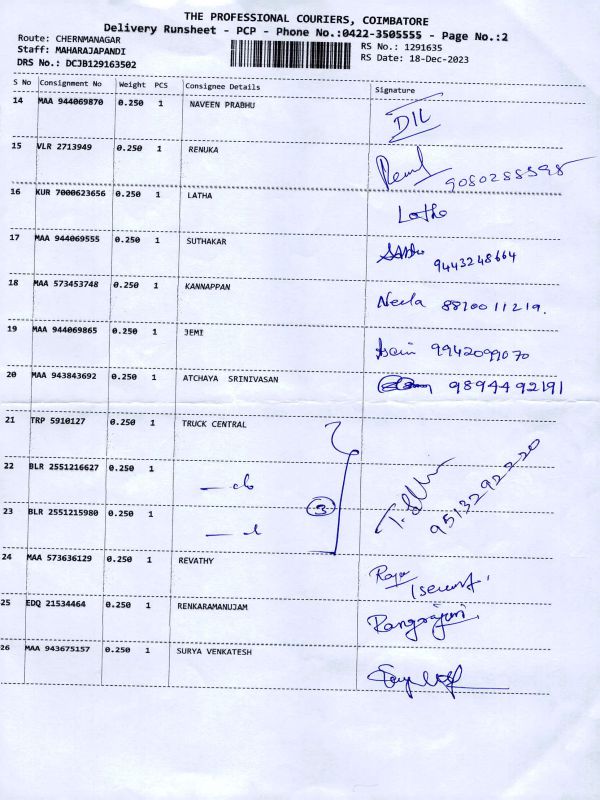 THE PROFESSIONAL COURIERS, COIMBATORE
Delivery Runsheet - PCP - Phone No.:0422-3505555 - Page No.:2
Route: CHERNMANAGAR
RS No.: 1291635
Staff: MAHARAJAPANDI
RS Date: 18-Dec-2023
DRS No.: DCJB129163502
S No Consignment No Weight PCS Consignee Details Signature
14 MAA 944069870 0.250 1 NAVEEN PRABHU
15 VLR 2713949 0.250 1 RENUKA
16 KUR 7000623656 0.250 1 LATHA Latha
17 MAA 944069555 0.250 1 SUTHAKAR 9443248664
18 MAA 573453748 0.250 1 KANNAPPAN Neela 8870011219.
19 MAA 944069865 0.250 1 JEMI 9942099070
20 MAA 943843692 0.250 1 ATCHAYA SRINIVASAN 9894492191
21 TRP 5910127 0.250 1 TRUCK CENTRAL
22 BLR 2551216627 0.250 1
23 BLR 2551215980 0.250 1 3 9513292220
24 MAA 573636129 0.250 1 REVATHY
25 EDQ 21534464 0.250 1 RENKARAMANUJAM
26 MAA 943675157 0.250 1 SURYA VENKATESH